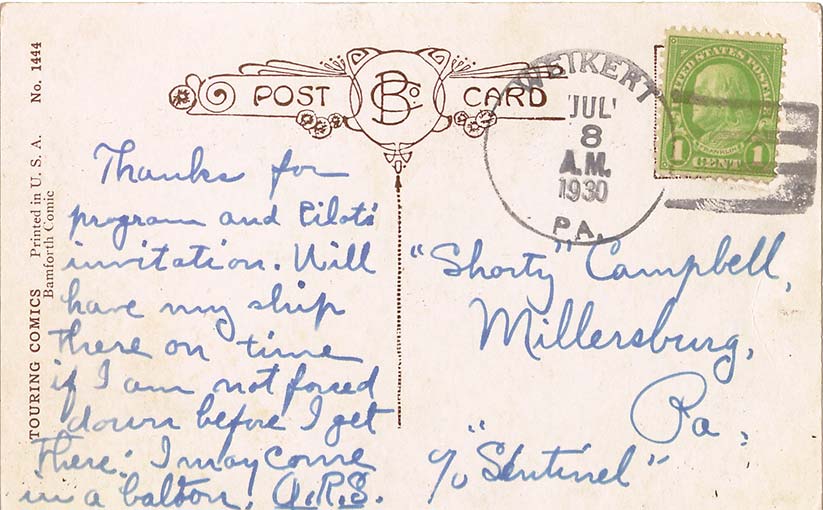 TOURING COMICS Printed in U. S. A. No. 1444
Bamforth Comic
POST CARD
B Co
WEIKERT
JUL
8
A.M.
1930
PA.
UNITED STATES POSTAGE
FRANKLIN
1 CENT 1
Thanks for
program and Pilots
invitation. Will
have my ship
there on time
if I am not forced
down before I get
There. I may come
in a baloon. A.R.S.
"Shorty" Campbell,
Millersburg,
Pa.
c/o "Sentinel"